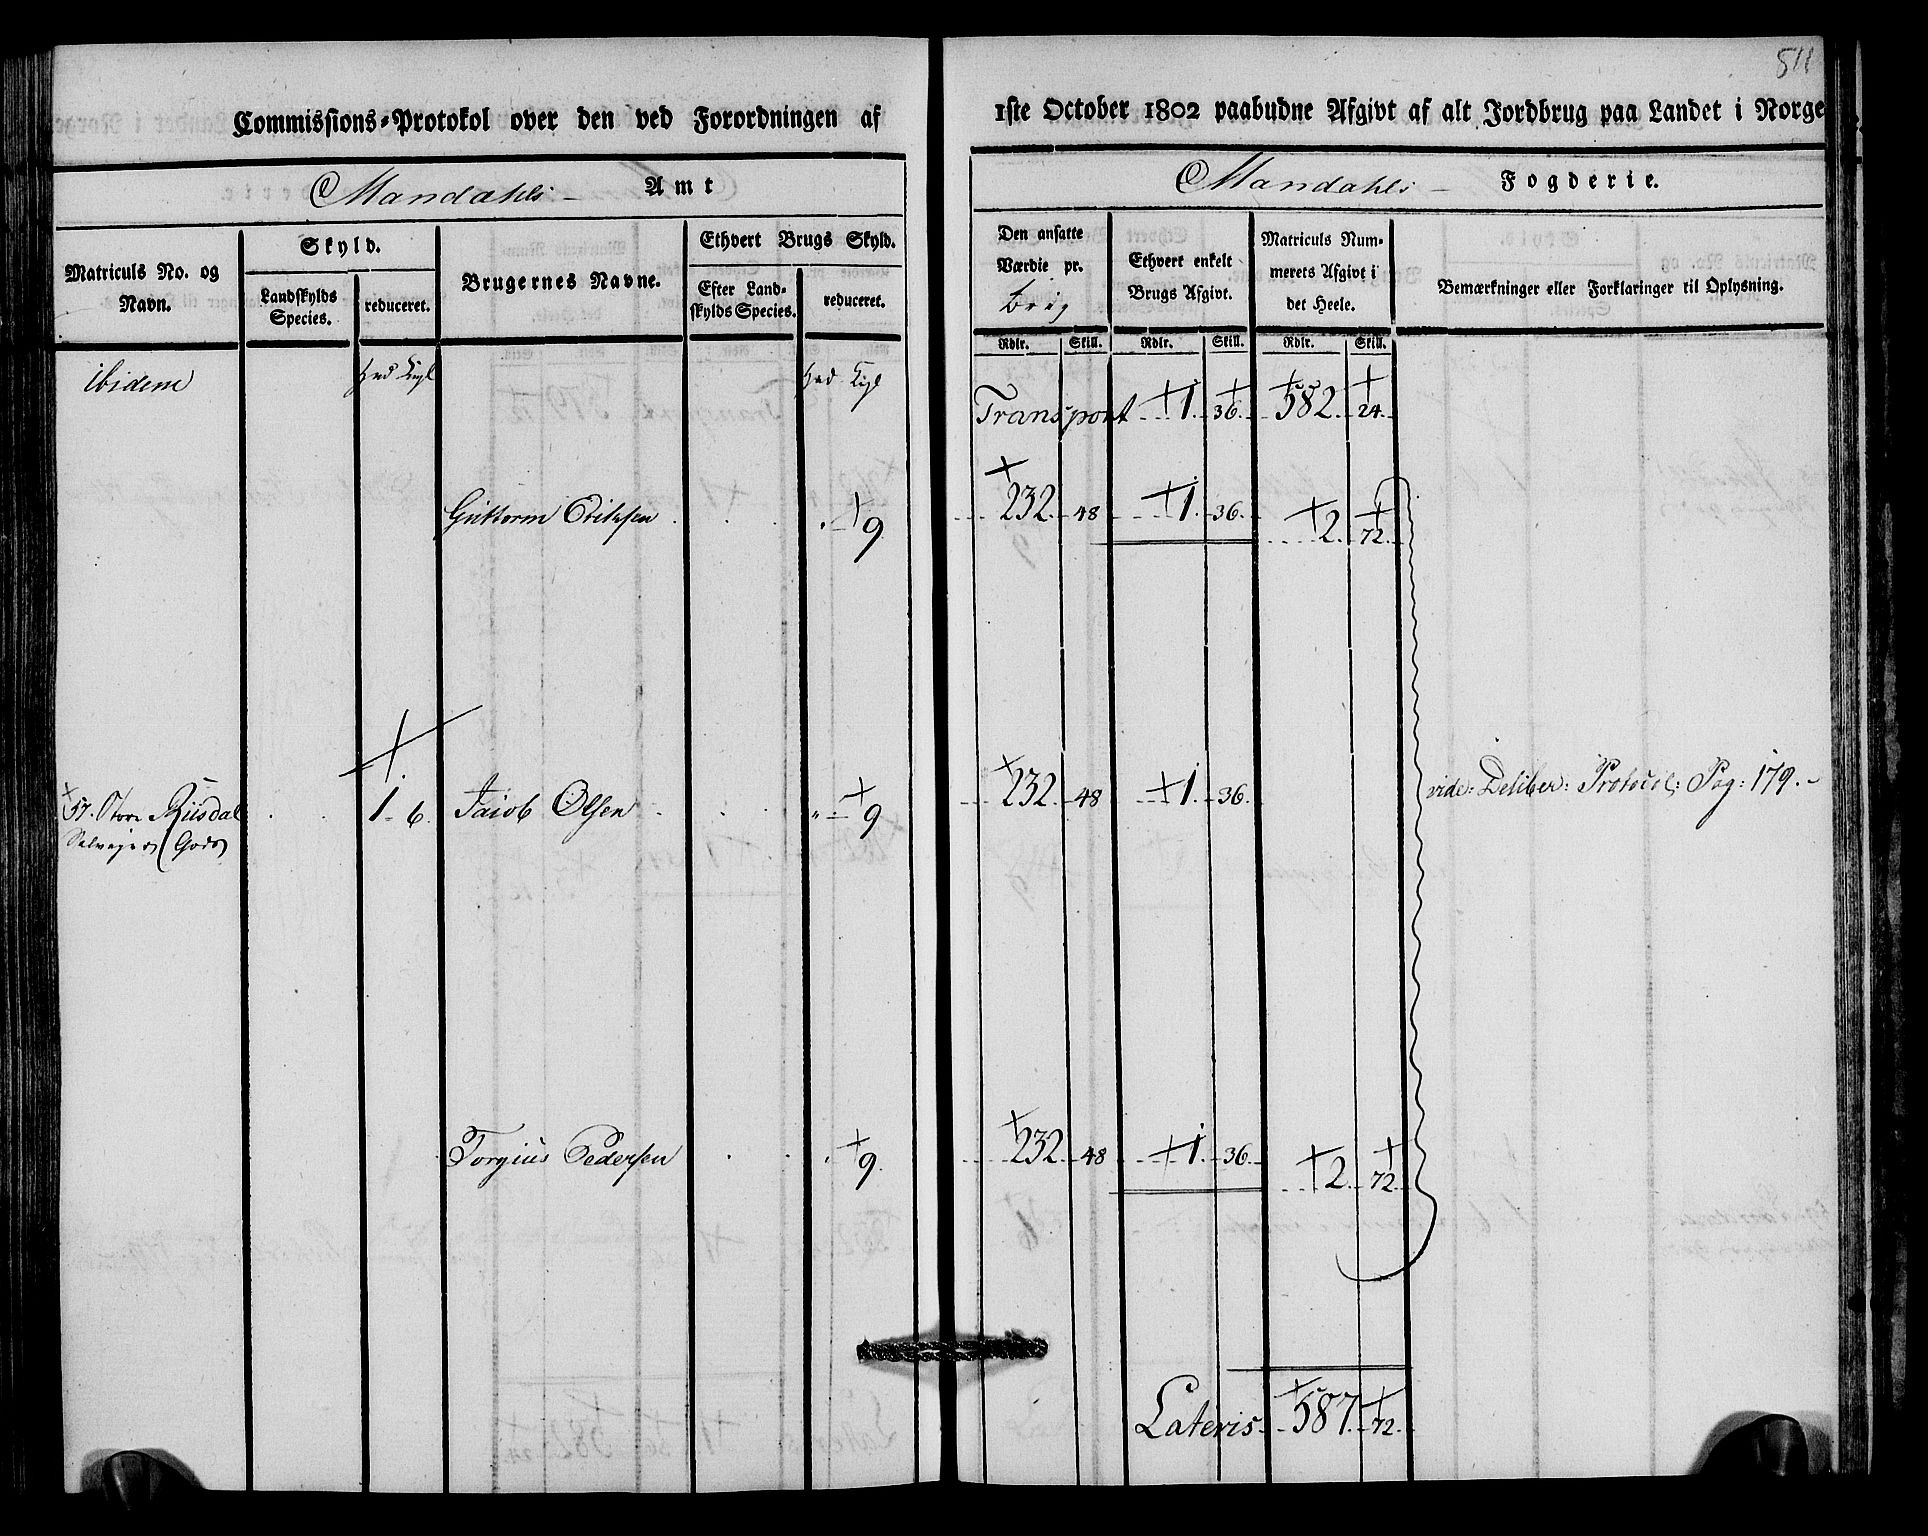 511
Commissions-Protokol over den ved Forordningen af
1ste October 1802 paabudne Afgivt af alt Jordbrug paa Landet i Norge
Mandahls – Amt
Mandahls – Fogderie.
Matriculs No. og Navn.
Skyld.
Landskylds Species.
reduceret.
Brugernes Navne.
Ethvert Brugs Skyld.
Efter Landskylds Species.
reduceret.
Den ansatte Værdie pr. brug
Ethvert enkelt Brugs Afgivt.
Matriculs Nummerets Afgivt i det Heele.
Bemærkninger eller Forklaringer til Oplysning.
Rdlr. Skill. Rdlr. Skill. Rdlr. Skill.
ibidem
Transport 1. 36. 582. 24.
Guttorm Erichsen 9 232. 48 1. 36. 2. 72.
57. Store Riisdal 1. 6. Jacob Olsen 9 232. 48 1. 36. vide: Deliber: Protocol: Pag: 179. –
Selvejer Gods
Torgius Pedersen 9 232. 48 1. 36. 2. 72.
Lateris 587. 72.